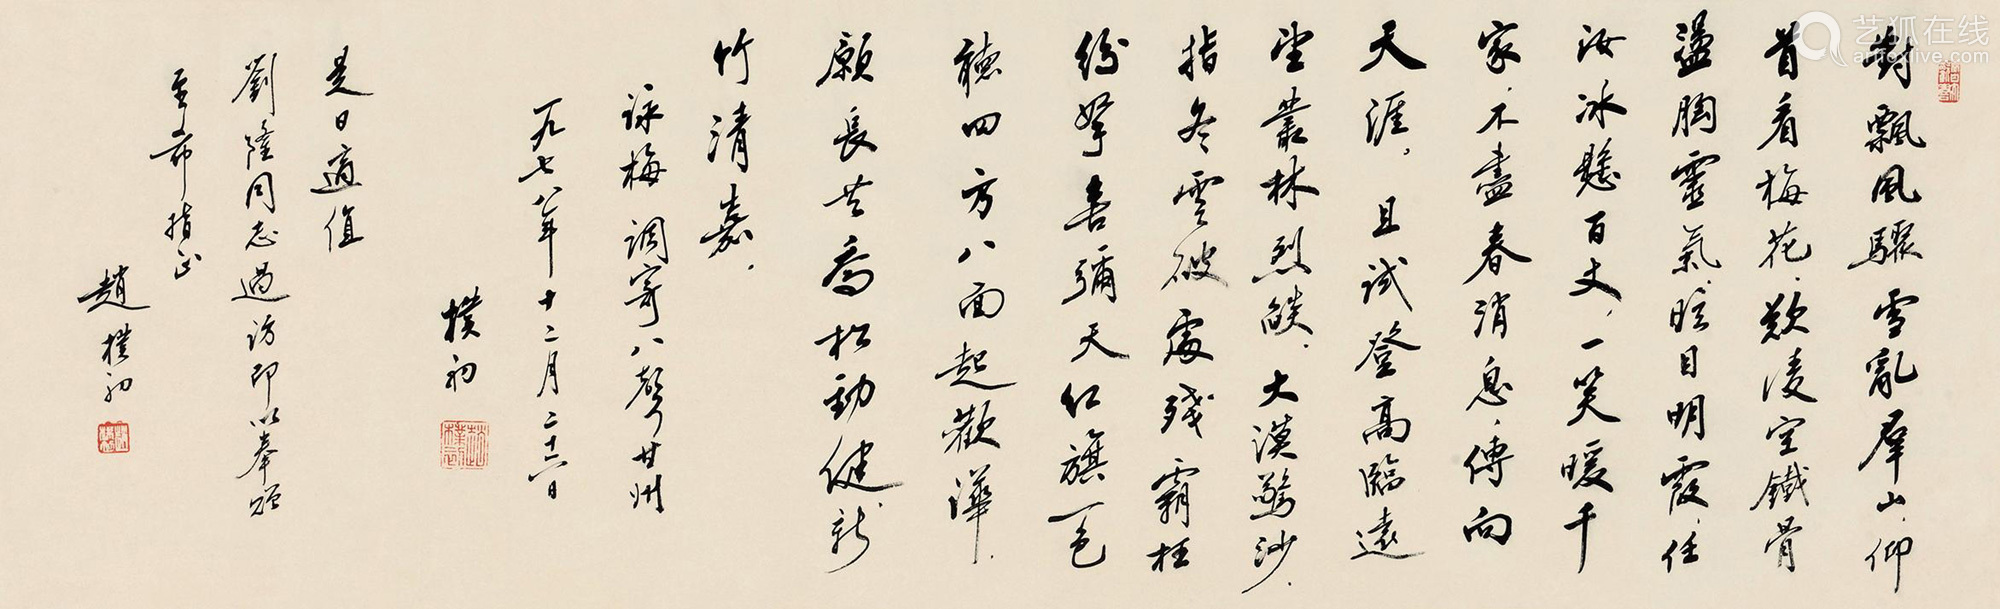 對飄風驟雪亂羣山,仰
首看梅花,歎凌空鐵骨
盪胸靈氣,眩目明霞,任
汝冰懸百丈,一笑暖千
家,不盡春消息,傳向
天涯,且試登高臨遠
望叢林烈燄,大漠驚沙,
指冬雲破處殘霸枉
紛拏,喜彌天紅旗一色
聽四方八面起歡譁,
願長共喬松勁健新
竹清嘉,
詠梅 調寄八聲甘州
一九七八年十二月二十六日
樸初
是日適值
劉隆同志過訪即以奉贈
至希指正
趙樸初
艺狐在线
artfoxlive.com